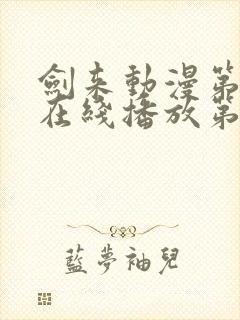 劍來動漫第
在綫播放第
藍夢袖兒